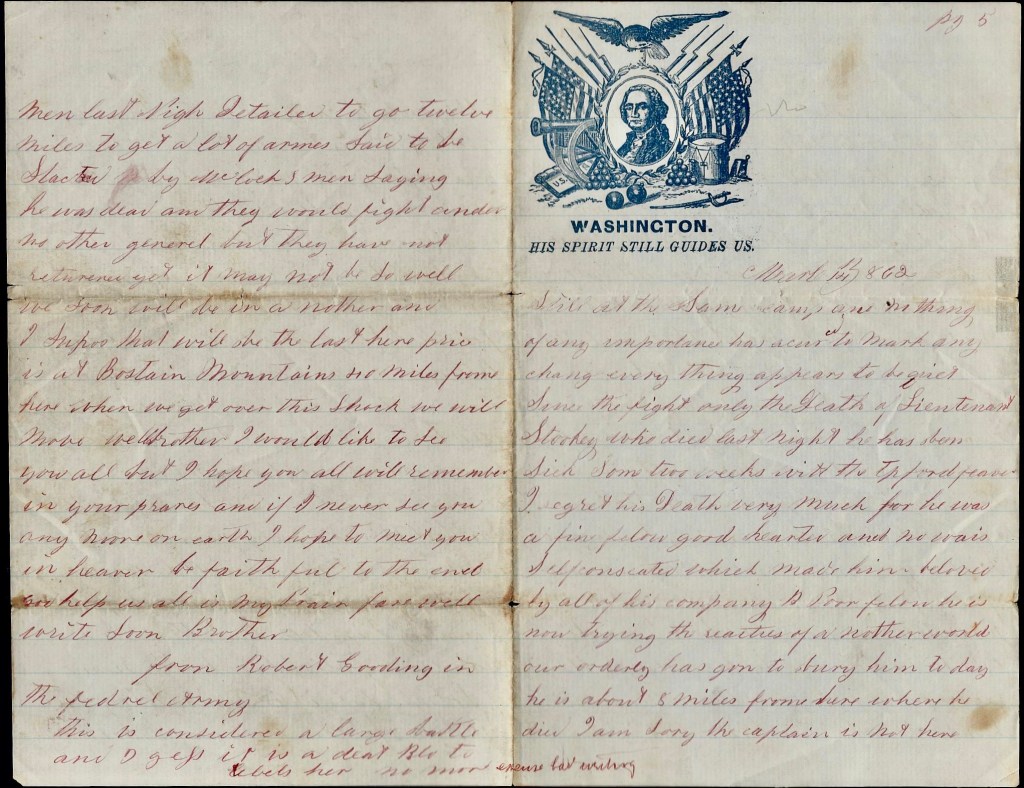 men last Nigh Detailed to go twelve
miles to get a lot of armes Said to be
Stacted by McCloch s men Saying
he was dead and they would fight under
no other general but they have not
returned yet it may not be So well
we Soon will be in a nother and
I Supos that will be the last here pric
is at Bostain Mountains 40 miles frome
here when we get over this Shock we will
move well brother I would like to See
you all but I hope you all will remember
in your prares and if I never See you
any more on earth I hope to meet you
in heaven be faith ful to the end
god help us all is my prair fare well
write Soon Brother
from Robert Gooding in
the fedrel Army
this is considered a large battle
and I gess it is a deat Blo to
rebels her no more excuse bad writing
pg 5
U.S.
WASHINGTON.
HIS SPIRIT STILL GUIDES US.
March 14 1862
Still at the Sam Camp and nothing
of any importance has acurd to mark any
chang every thing appears to be quiet
Since the fight only the Death of Lieutenant
Stookey who died last night he has ben
Sick Som two weeks with the typford feaver
I regret his Death very much for he was
a fine felow good hearted and no wais
Selfconseated which made him beloved
by all of his company B Poor felow he is
now trying the realties of a nother world
our orderly has gon to bury him to day
he is about 8 miles frome here where he
died I am Sory the captain is not here